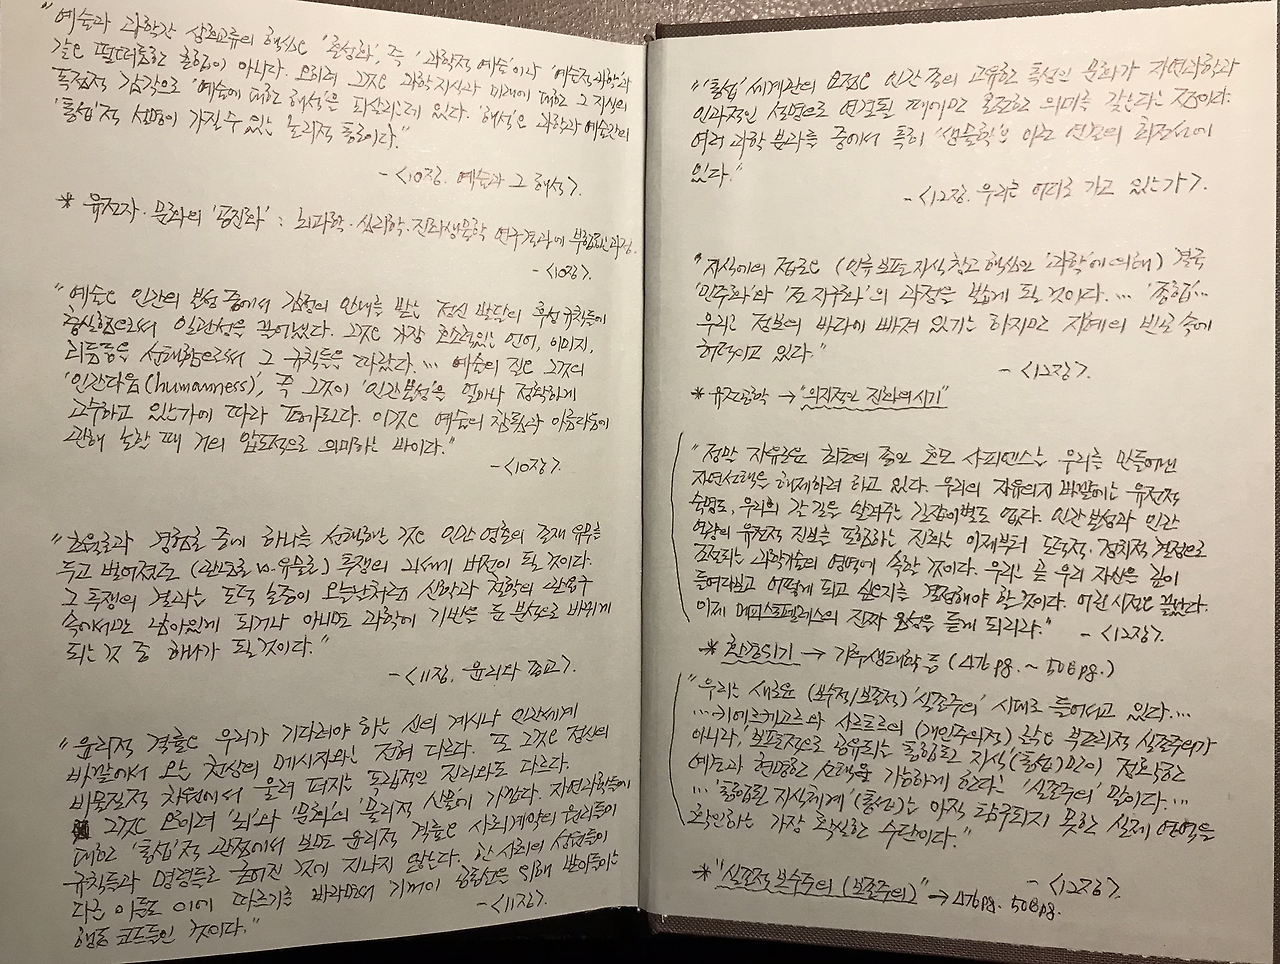 "예술과 과학간 상호교류의 핵심은 '혼성화', 즉 '과학적 예술'이나 '예술적 과학'과
같은 떨떠름한 혼합이 아니다. 오히려 그것은 과학지식과 미래에 대한 그 지식의
독점적 감각으로 '예술에 대한 해석'을 되살리는데 있다. '해석'은 과학과 예술간의
'통섭'적 설명이 가질 수 있는 논리적 통로이다."
- <10장. 예술과 그 해석>.
* 유전자·문화의 '공진화' : 뇌과학·심리학·진화생물학 연구결과에 부합되는 과정.
- <10장>.
"예술은 인간의 본성 중에서 감정의 안내를 받는 정신 발달의 후성규칙들에
충실함으로써 일관성을 끌어냈다. 그것은 가장 호소력있는 언어, 이미지,
리듬등을 선택함으로써 그 규칙들을 따랐다. … 예술의 질은 그것의
'인간다움(humanness)', 즉 그것이 '인간본성'을 얼마나 정확하게
고수하고 있는가에 따라 평가된다. 이것은 예술의 참됨과 아름다움에
관해 논할 때 거의 압도적으로 의미하는 바이다."
- <10장>.
"초월론과 경험론 중에 하나를 선택하는 것은 인간 영혼의 존재 유무를
두고 벌어졌도 (관념론 vs. 유물론) 투쟁의 버전이 될 것이다.
그 투쟁의 결과는 도덕 논증이 오늘날처럼 신학과 철학의 관용구
속에서만 남아있게 되거나 아니면 과학에 기반을 둔 분석으로 바뀌게
되는 것 중 하나가 될 것이다."
- <11장. 윤리와 종교>.
"윤리적 격률은 우리가 기다려야 하는 신의 계시나 인간세계
바깥에서 오는 천상의 메시지와는 전혀 다르다. 또 그것은 정신의
비물질적 차원에서 울려 퍼지는 독립적인 진리와도 다르다.
그것은 오히려 '뇌'와 '문화'의 '물리적 산물'에 가깝다. 자연과학들에
대한 '통섭'적 관점에서 보면 윤리적 격률은 사회계약의 원리들이
규칙들과 명령들로 굳어진 것에 지나지 않는다. 한 사회의 성원들이
다른 이들도 이에 따르기를 바라면서 기꺼이 공동선을 위해 받아들이는
행동 코드들인 것이다."
- <11장>.
"'통섭' 세계관의 요점은 인간 종의 고유한 특성인 문화가 자연과학과
인과적인 설명으로 연결될 때에만 온전한 의미를 갖는다는 점이다.
여러 과학 분과들 중에서 특히 '생물학'은 이런 연결의 최전선에
있다."
- <12장. 우리는 어디로 가고 있는가>.
"지식에의 접근은 (인류 보편 지식 창고 핵심인 '과학'에 의해) 결국
'민주화'와 '전 지구화'의 과정을 밟게 될 것이다. … '종합' …
우리는 정보의 바다에 빠져 있기는 하지만 지혜의 빈곤 속에
허덕이고 있다."
- <12장>.
* 유전공학 → "의지적인 진화의 시기"
"정말 자유로운 최초의 종인 호모 사피엔스는 우리를 만들어낸
자연선택을 해제하려 하고 있다. 우리의 자유의지 바깥에는 유전적
숙명도, 우리의 갈 길을 알려주는 길잡이별도 없다. 인간 본성과 인간
역량의 유전적 진보를 포함하는 진화는 이제부터 도덕적·정치적 결정으로
조절되는 과학기술의 영역에 속할 것이다. 우리는 곧 우리 자신을 깊이
들여다보고 어떻게 되고 싶은지를 결정해야 할 것이다. 어린 시절은 끝났다.
이제 메피스토펠레스의 진짜 음성을 듣게 되리라." - <12장>.
* 환경위기 → 기후생태학 등 (476pg. ~ 508pg.)
"우리는 새로운 (보수적/보존적) '실존주의' 시대로 들어서고 있다. …
… 키에르케고르와 사르트르의 (개인주의적) 낡은 부조리적 실존주의가
아니라, '보편적으로 공유되는 통합된 지식'(통섭)만이 정확한
예측과 현명한 선택을 가능하게 한다는 '실존주의' 말이다. …
… '통합된 지식체계'(통섭)는 아직 탐구되지 못한 실제 영역을
확인하는 가장 확실한 수단이다."
- <12장>.
* "실존적 보수주의 (보존주의)" → 476pg. 508pg.